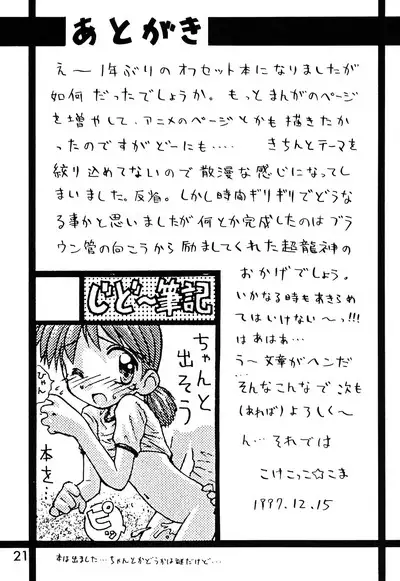 あとがき
えー1年ぶりのオフセット本になりましたが
如何だったでしょうか。もっとまんがのページ
を増やして、アニメのページとかも描きたか
ったのですがどーにも…… きちんとテーマを
絞り込めてないので散漫な感じになってし
まいました。反省。しかし時間ギリギリでどうな
る事かと思いましたが何とか完成したのはブラ
ウン管の向こうから励ましてくれた超龍神の
おかげでしょう。
いかなる時もあきらめ
てはいけない〜っ!!!
はあはぁ…
う〜文章がヘンだ…
そんなこんなで次も
(あれば)よろしく〜
ん…それでは
こけこっこ☆こま
1997.12.15
じど〜筆記
ちゃんと
出そう
本を…
ピッ
本は出ました…ちゃんとかどうかは謎だけど…
21